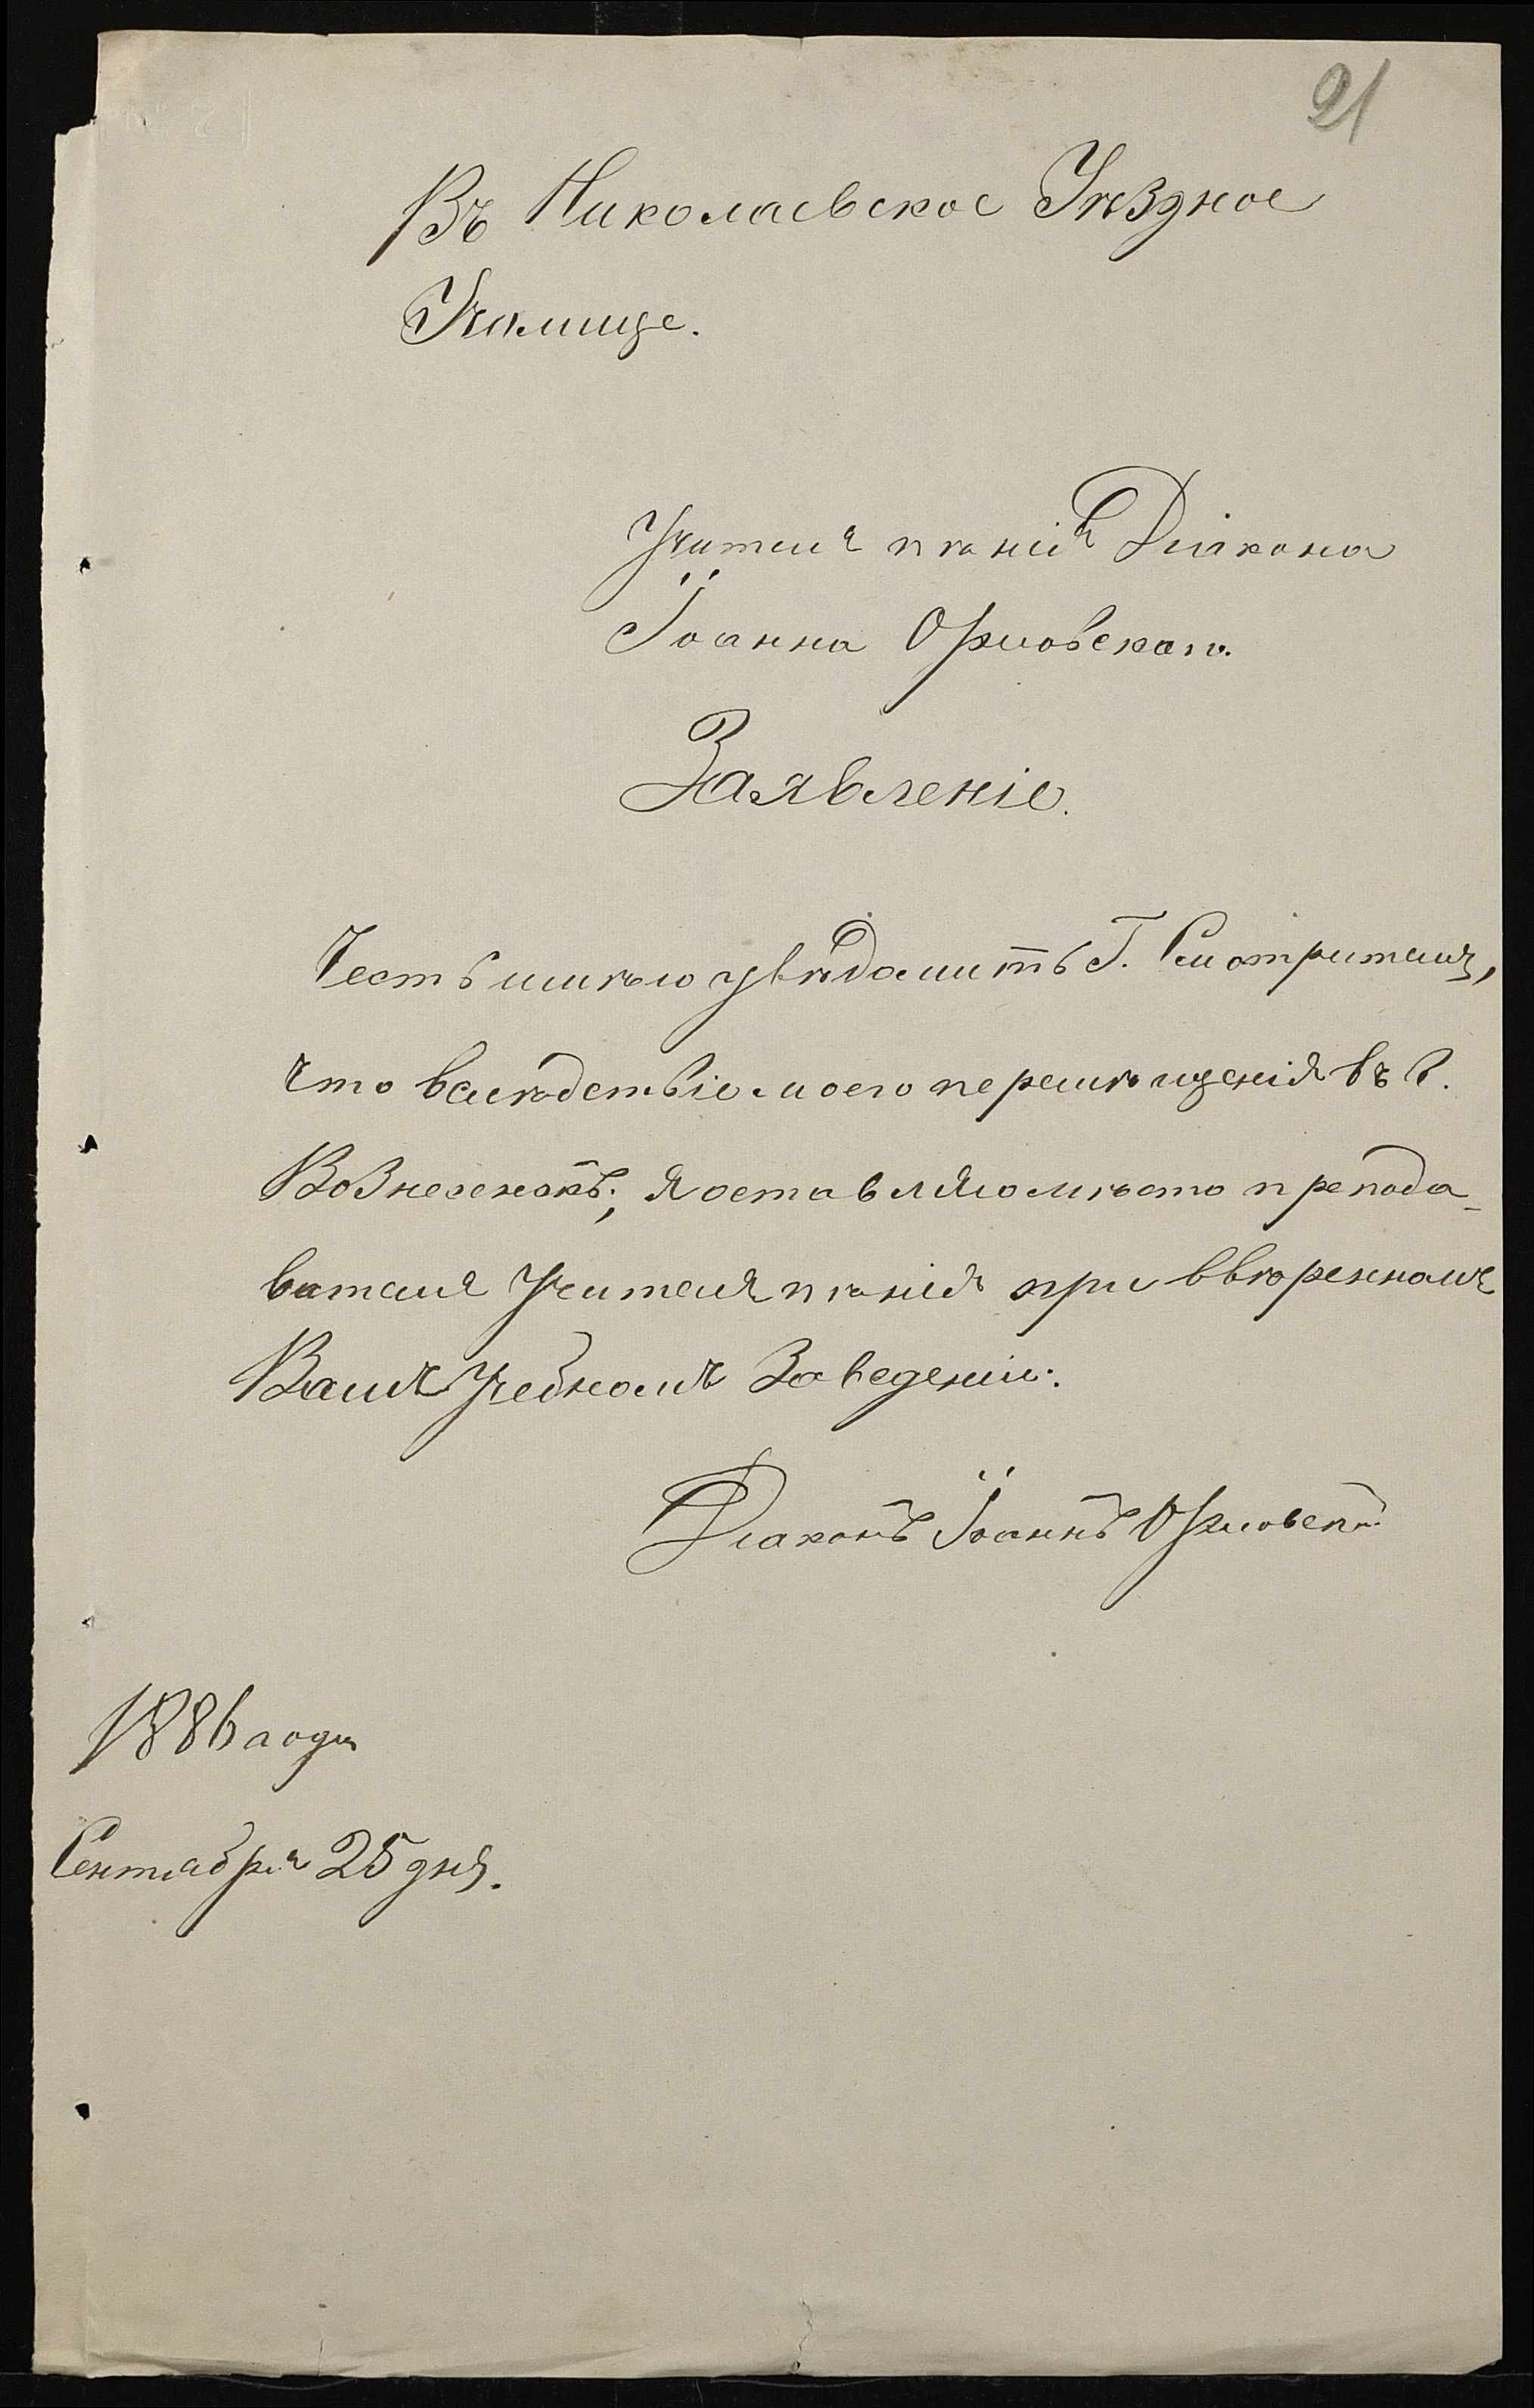 21
Въ Николаевское Уѣздное
Училище.
Учителя пѣнія Діакона
Іоанна Орловскаго.
Заявленіе.
Честь имѣю увѣдомить Г. Смотрителя,
что вслѣдствіе моего перемѣщенія въ г.
Вознесенскъ, я оставляю мѣсто препода-
вателя Учителя пѣнія при ввѣренномъ
Вамъ Учебномъ Заведеніи.
Діаконъ Іоаннъ Орловскій
1886 года
Сентября 25 дня.